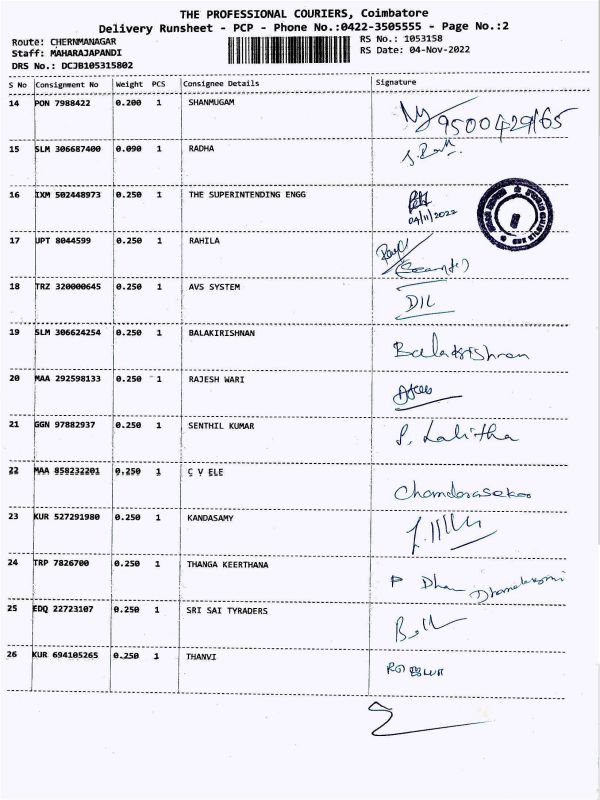 THE PROFESSIONAL COURIERS, Coimbatore
Delivery Runsheet - PCP - Phone No.:0422-3505555 - Page No.:2
Route: CHERNMANAGAR
RS No.: 1053158
Staff: MAHARAJAPANDI
RS Date: 04-Nov-2022
DRS No.: DCJB105315802
S No Consignment No Weight PCS Consignee Details Signature
14 PON 7988422 0.200 1 SHANMUGAM
9500429165
15 SLM 306687400 0.090 1 RADHA
16 IXM 502448973 0.250 1 THE SUPERINTENDING ENGG
04/11/2022
17 UPT 8044599 0.250 1 RAHILA
18 TRZ 320000645 0.250 1 AVS SYSTEM
DIL
19 SLM 306624254 0.250 1 BALAKIRISHNAN
Balakrishnan
20 MAA 292598133 0.250 1 RAJESH WARI
21 GGN 97882937 0.250 1 SENTHIL KUMAR
P. Lalitha
22 MAA 858232201 0.250 1 C V ELE
Chandrasekar
23 KUR 527291980 0.250 1 KANDASAMY
24 TRP 7826700 0.250 1 THANGA KEERTHANA
P Dhan Dhanalaxmi
25 EDQ 22723107 0.250 1 SRI SAI TYRADERS
26 KUR 694105265 0.250 1 THANVI